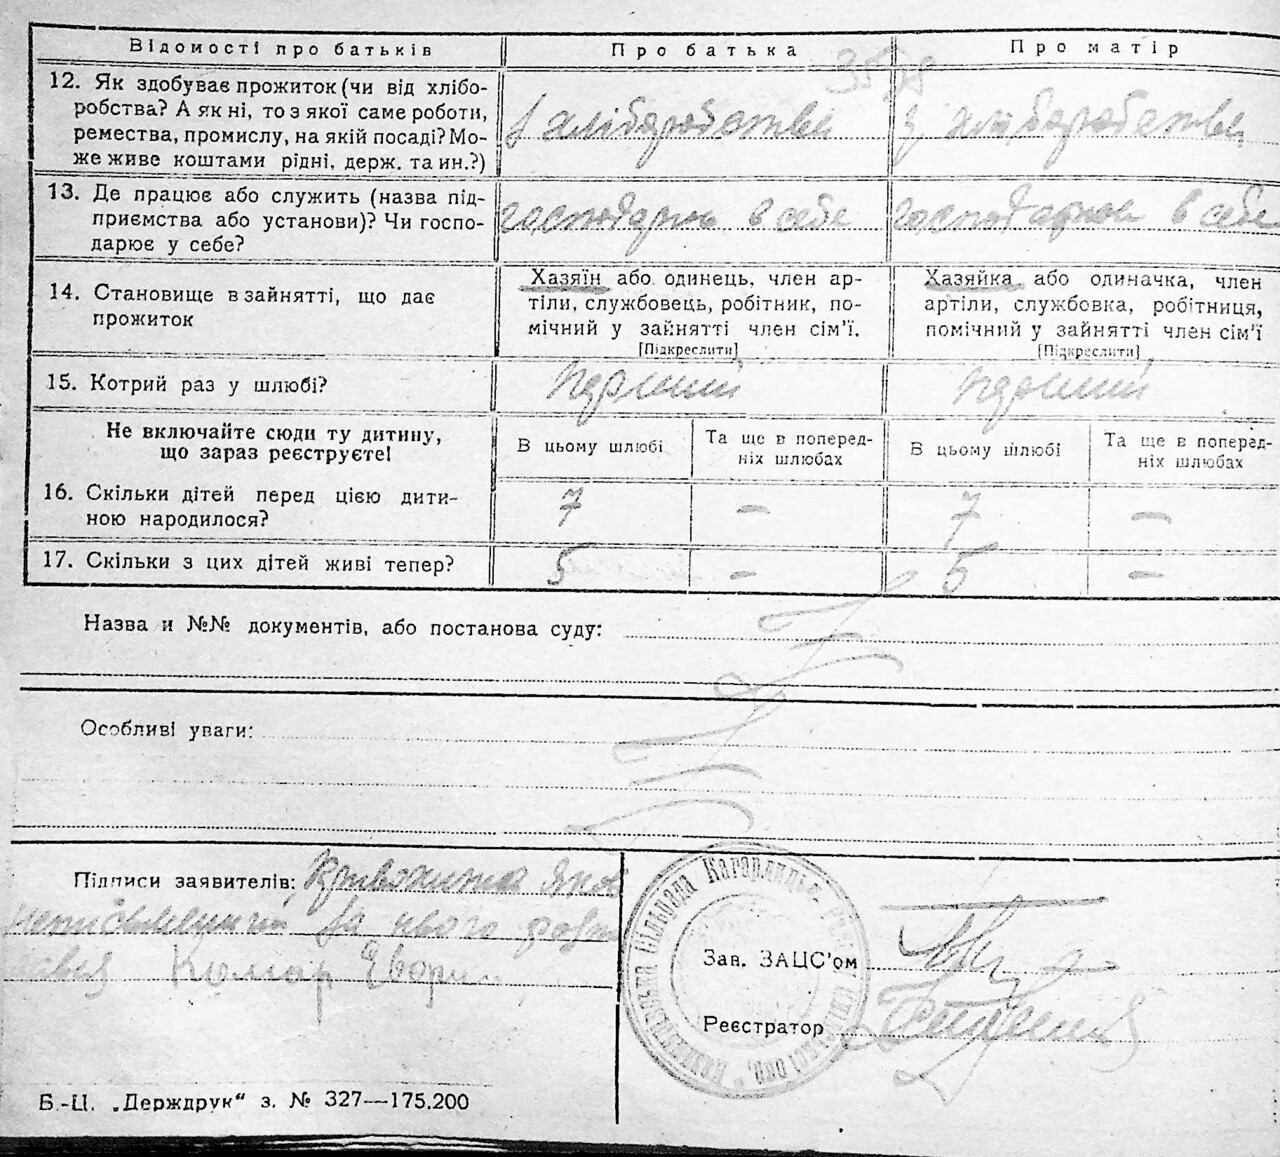 Відомості про батьків
Про батька
Про матір
12. Як здобуває прожиток (чи від хлібо-
робства? А як ні, то з якої саме роботи,
ремества, промислу, на якій посаді? Мо-
же живе коштами рідні, держ. та ин.?)
з хліборобства
з хліборобства
13. Де працює або служить (назва під-
приємства або установи)? Чи госпо-
дарює у себе?
господарює в себе
господарює в себе
14. Становище в зайнятті, що дає
прожиток
Хазяїн або одинець, член ар-
тіли, службовець, робітник, по-
мічний у зайнятті член сім'ї.
[Підкреслити]
Хазяйка або одиначка, член
артіли, службовка, робітниця,
помічний у зайнятті член сім'ї
[Підкреслити]
15. Котрий раз у шлюбі?
перший
перший
Не включайте сюди ту дитину,
що зараз реєструєте!
В цьому шлюбі
Та ще в поперед-
ніх шлюбах
В цьому шлюбі
Та ще в поперед-
ніх шлюбах
16. Скільки дітей перед цією дити-
ною народилося?
7
—
7
—
17. Скільки з цих дітей живі тепер?
5
—
5
—
Назва и №№ документів, або постанова суду:
Особливі уваги:
Підписи заявителів:
неписьменний за нього розпи
Комар
Зав. ЗАЦС'ом
Реєстратор
Б.-Ц. „Держдрук“ з. № 327—175.200